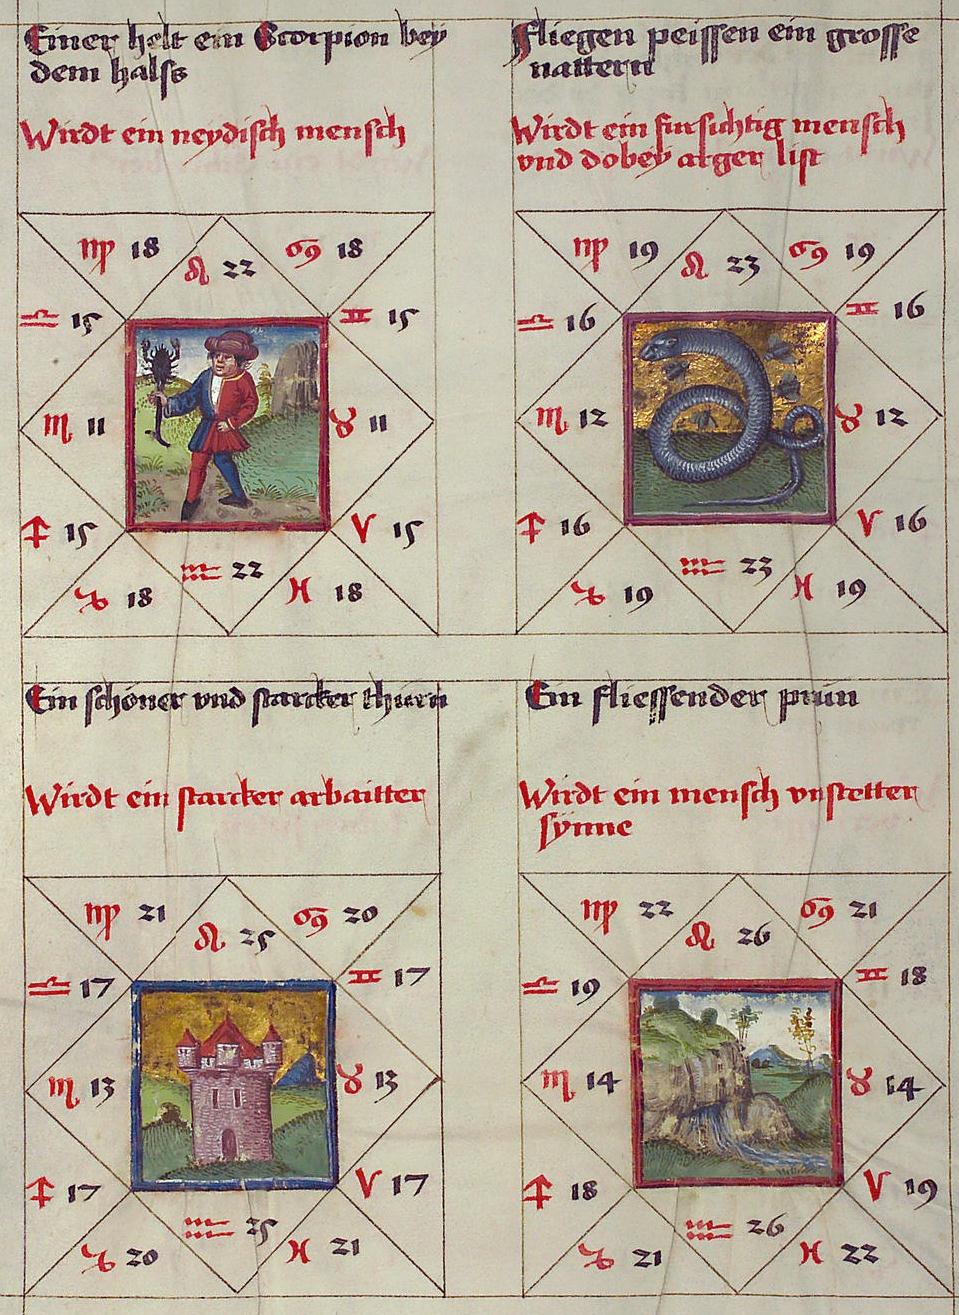 Einer helt ein Scorpion bey
dem halss
Wirdt ein neydisch mensch
♍ 18
♌ 22
♋ 18
♎ 15
♊ 15
♏ 11
♉ 11
♐ 15
♈ 15
♑ 18
♒ 22
♓ 18
Fliegen peissen ein grosse
nattern
Wirdt ein fursichtig mensch
vnd dobey arger list
♍ 19
♌ 23
♋ 19
♎ 16
♊ 16
♏ 12
♉ 12
♐ 16
♈ 16
♑ 19
♒ 23
♓ 19
Ein schöner vnd starcker thurn
Wirdt ein starcker arbaitter
♍ 21
♌ 25
♋ 20
♎ 17
♊ 17
♏ 13
♉ 13
♐ 17
♈ 17
♑ 20
♒ 25
♓ 21
Ein fliessender prün
Wirdt ein mensch vnstetter
synne
♍ 22
♌ 26
♋ 21
♎ 19
♊ 18
♏ 14
♉ 14
♐ 18
♈ 19
♑ 21
♒ 26
♓ 22